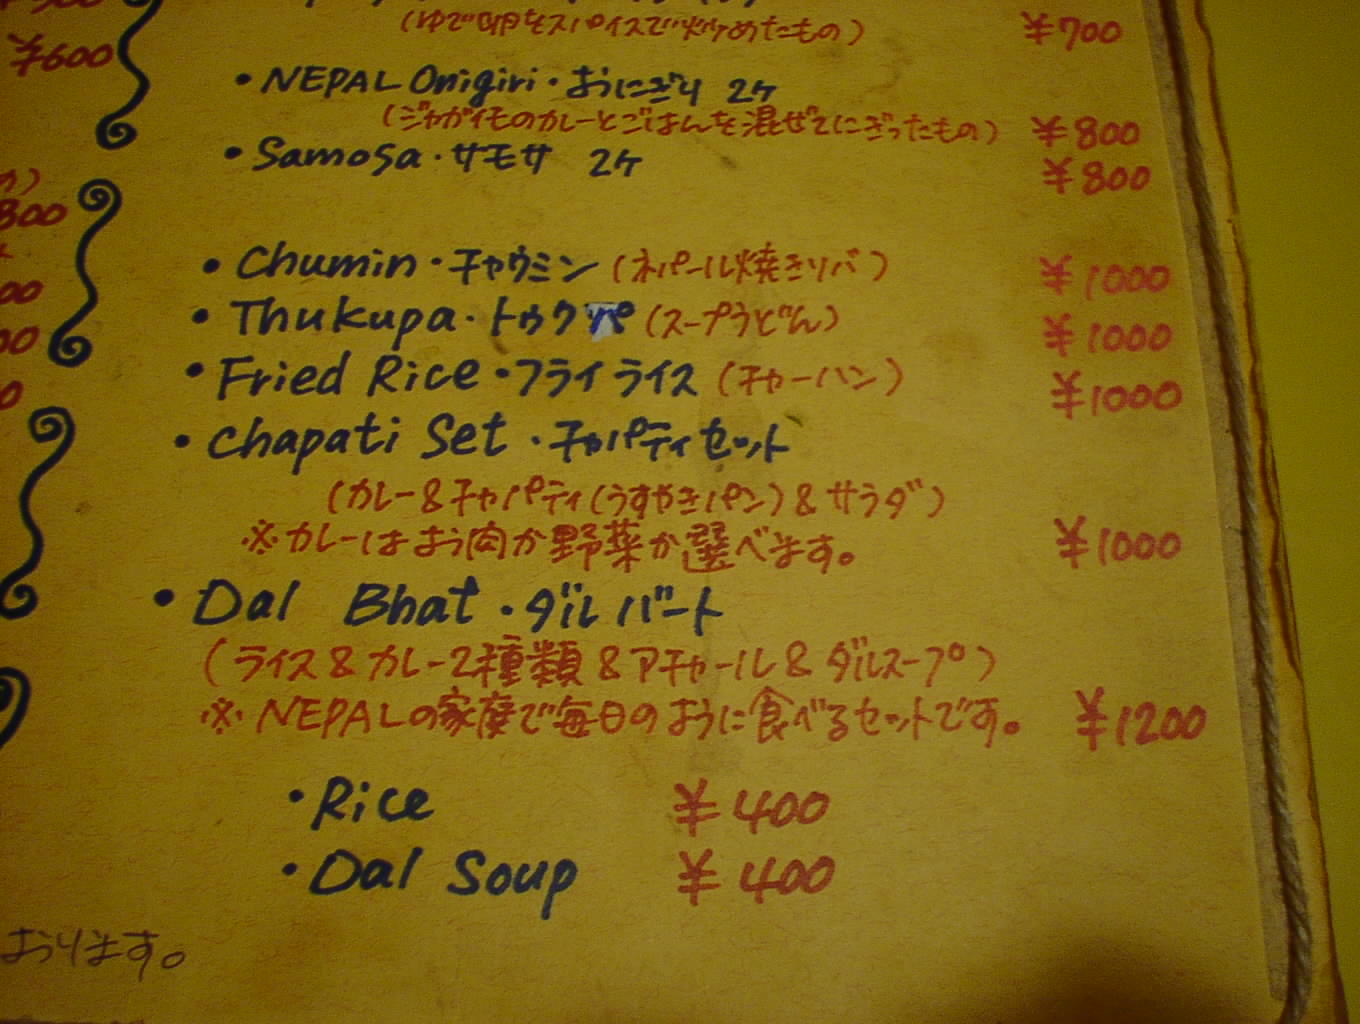 (ゆで卵をスパイスで炒めたもの) ¥700
¥600
・NEPAL Onigiri・おにぎり 2ヶ
(ジャガイモのカレーとごはんを混ぜてにぎったもの) ¥800
・Samosa・サモサ 2ケ ¥800
800
・Chumin・チャウミン (ネパール焼きソバ) ¥1000
00
・Thukupa・トゥクパ (スープうどん) ¥1000
00
・Fried Rice・フライライス (チャーハン) ¥1000
0
・Chapati Set・チャパティセット
(カレー&チャパティ(うすやきパン)&サラダ)
※カレーはお肉か野菜か選べます。 ¥1000
・Dal Bhat・ダルバート
(ライス&カレー2種類&アチャール&ダルスープ)
※NEPALの家庭で毎日のように食べるセットです。 ¥1200
・Rice ¥400
・Dal Soup ¥400
おります。